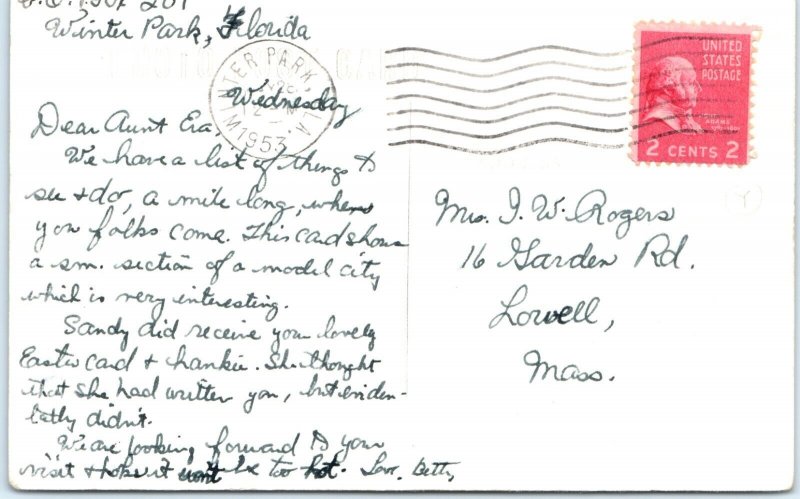 Box 201
Winter Park, Florida
WINTER PARK, FLA.
1953
Wednesday
UNITED
STATES
POSTAGE
ADAMS
2 CENTS 2
Dear Aunt Era,
We have a list of things to
see + do, a mile long, when
you folks come. This card shows
a sm. section of a model city
which is very interesting.
Sandy did receive your lovely
Easter card + hankie. She thought
that she had written you, but eviden-
tally didn't.
We are looking forward to your
visit + hope it won't be too hot. Love, Betty
Mrs. I. W. Rogers
16 Garden Rd.
Lowell,
Mass.